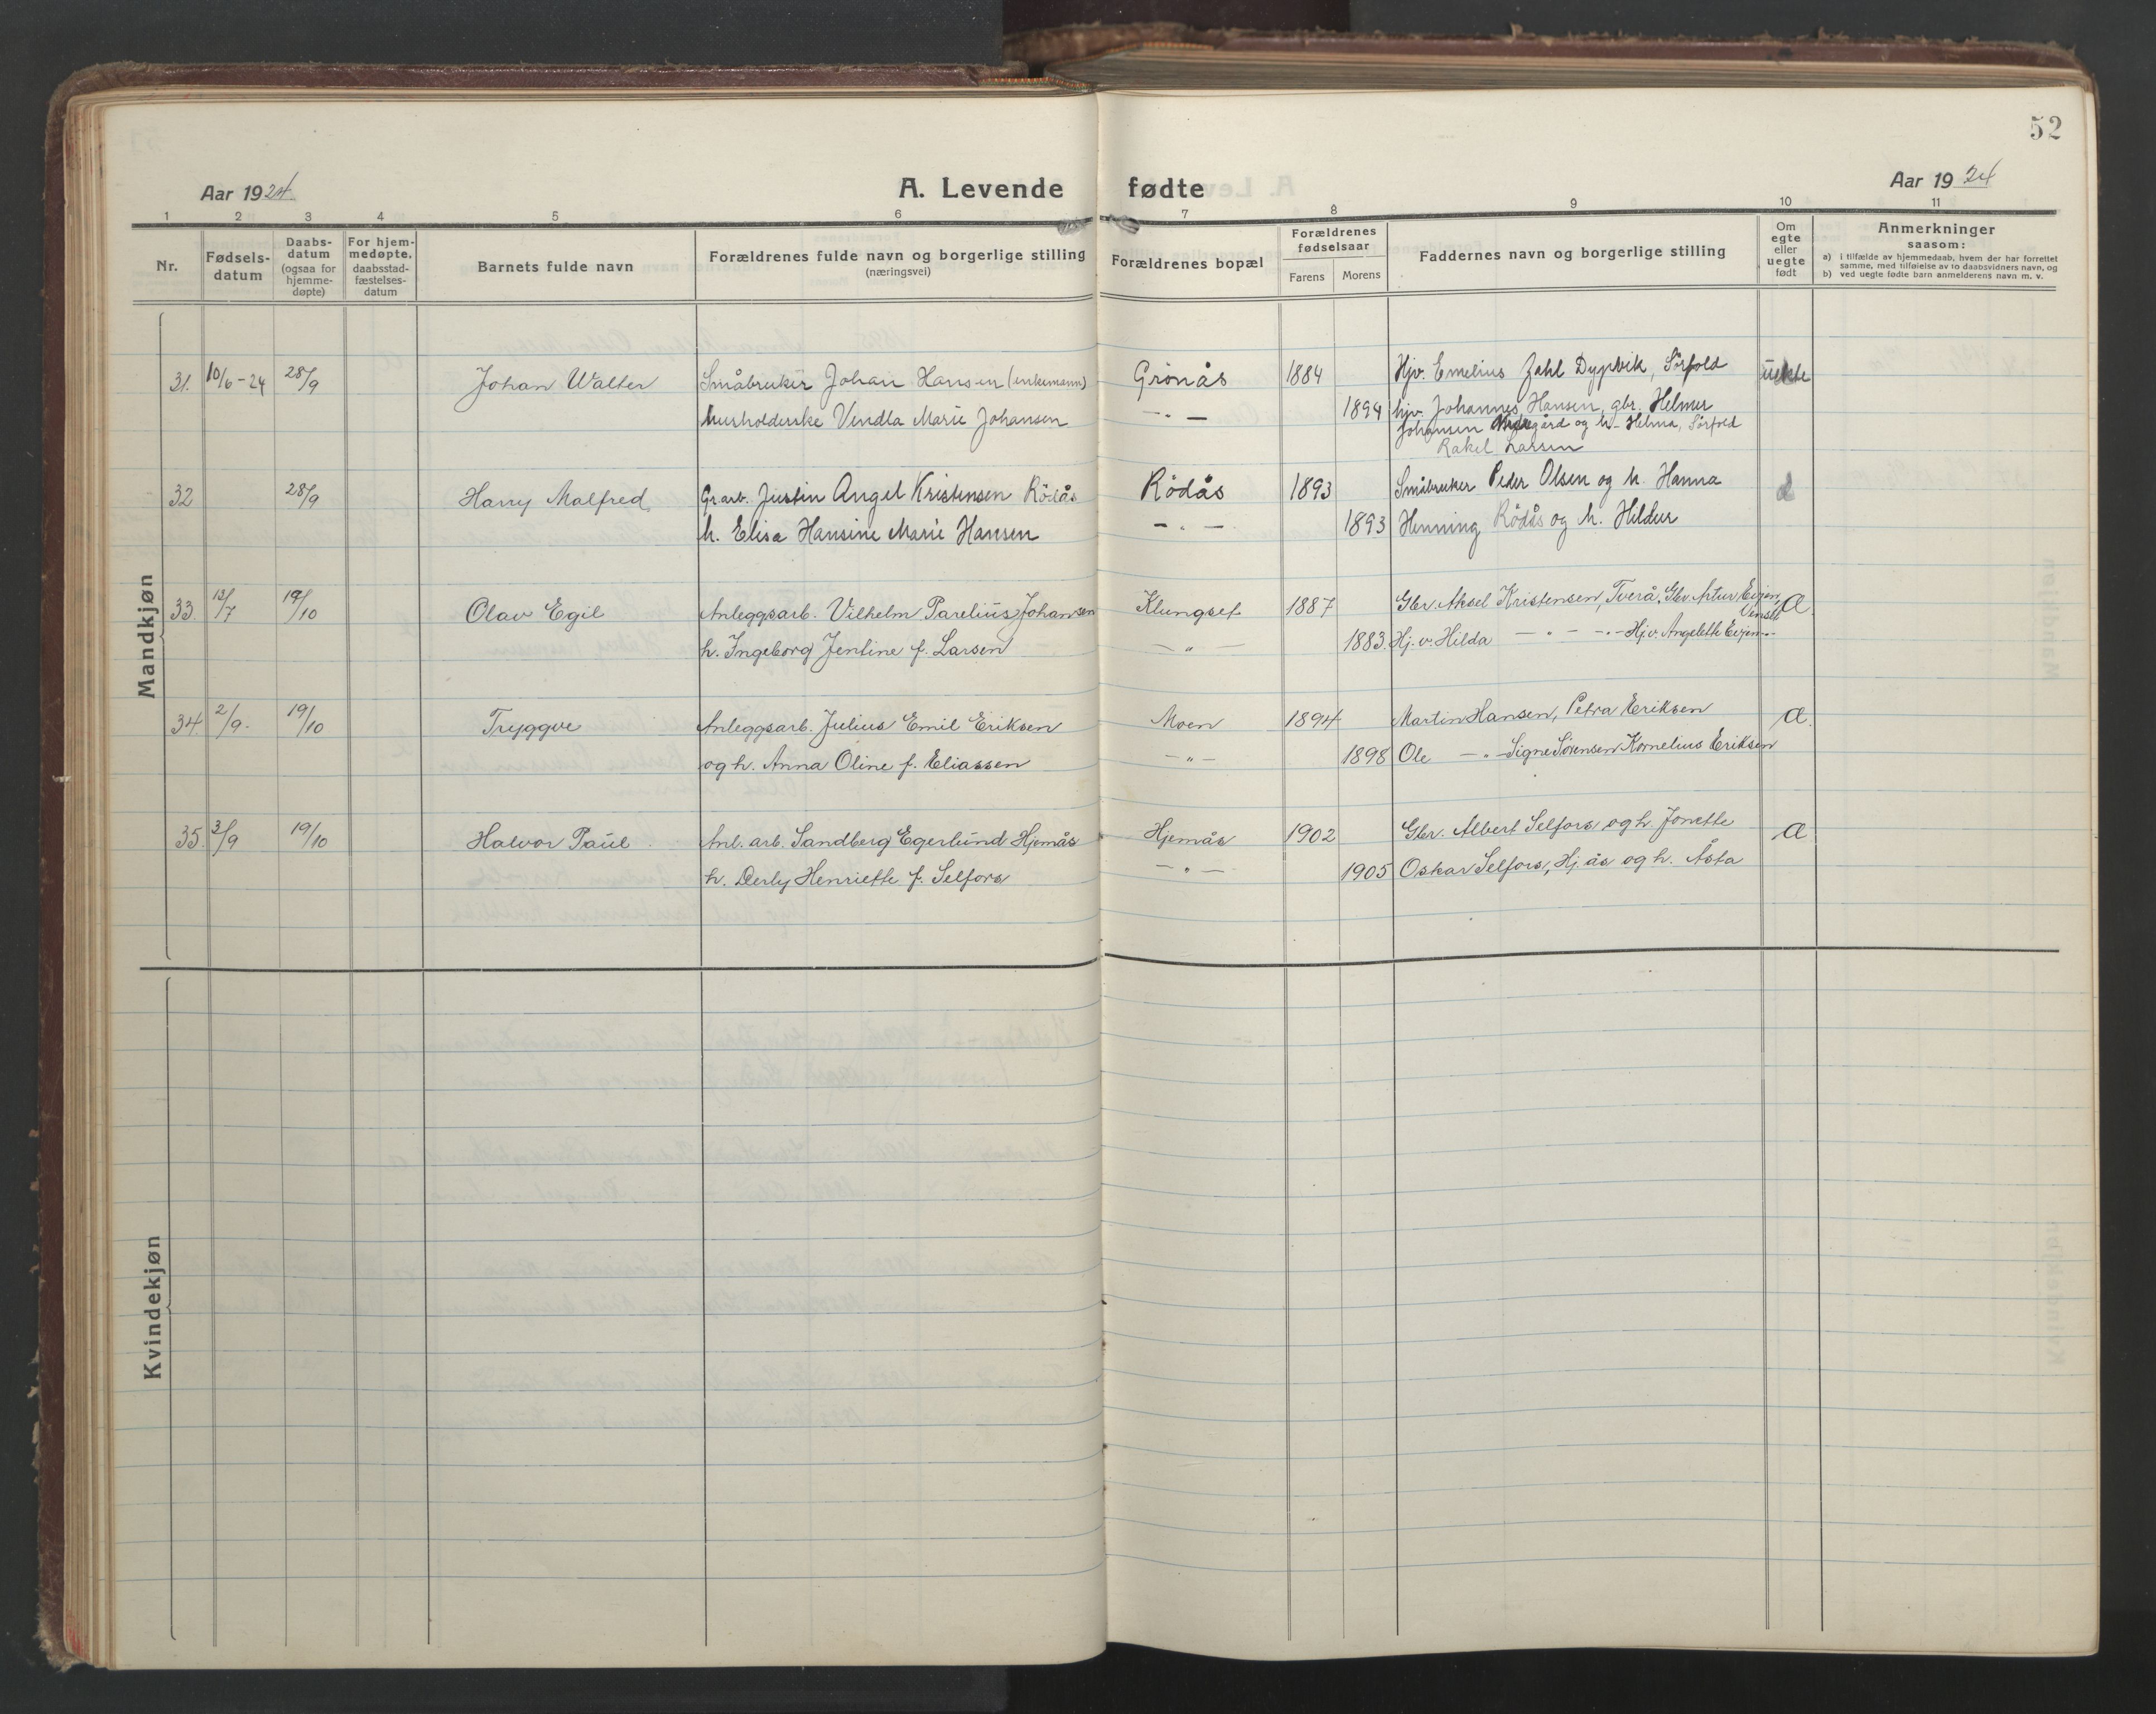 52
Aar 1924.
A. Levende fødte
Aar 1924
1 2 3 4 5 6 7 8 9 10 11
Nr.
Fødsels-
datum
Daabs-
datum
(ogsaa for
hjemme-
døpte)
For hjem-
medøpte,
daabsstad-
fæstelses-
datum
Barnets fulde navn
Forældrenes fulde navn og borgerlige stilling
(næringsvei)
Forældrenes bopæl
Forældrenes
fødselsaar
Farens Morens
Faddernes navn og borgerlige stilling
Om
egte
eller
uegte
født
Anmerkninger
saasom:
a) i tilfælde av hjemmedaab, hvem der har forrettet
samme, med tilføielse av to daabsvidners navn, og
b) ved uegte fødte barn anmelderens navn m. v.
Mandkjøn
31. 10/6-24 28/9 Johan Walter Småbruker Johan Hansen (enkemann) Grönås 1884 Hjv. Emelius Zahl Dypvik, Sørfold uekte
husholderske Vendla Marie Johansen -"- 1894 hjv. Johannes Hansen, gbr. Helmer
Johansen og h. Helma, Sørfold
Rakel Larsen
32 28/9 Harry Malfred Grarb. Justin Angel Kristensen Rödås Rödås 1893 Småbruker Peder Olsen og h. Hanna
h. Elisa Hansine Marie Hansen -"- 1893 Henning Rödås og h. Hildur
33. 13/7 19/10 Olav Egil Anleggsarb. Vilhelm Parelius Johansen Klungset 1887 Gbr. Aksel Kristensen, Tverå, Gbr. Artur Evjen, Venset a.
h. Ingeborg Jentine f. Larsen -"- 1883. Hj.v. Hilda -"- -"- Hj.v. Angelette Evjen -"-
34. 2/9. 19/10 Tryggve Anleggsarb. Julius Emil Eriksen Moen 1894 Martin Hansen, Petra Eriksen a.
og h. Anna Oline f. Eliassen -"- 1898 Ole -"- Signe Sørensen Kornelius Eriksen
35. 3/9 19/10 Halvor Paul Anl. arb. Sandberg Egerlund Hjemås Hjemås 1902 Gbr. Albert Selfors og h. Jonette a
h. Derly Henriette f. Selfors -"- 1905 Oskar Selfors, Hj.ås og h. Åsta
Kvindekjøn